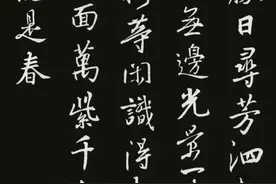 日尋芳泗
無邊光景一
等閑識得
面萬紫千
是春